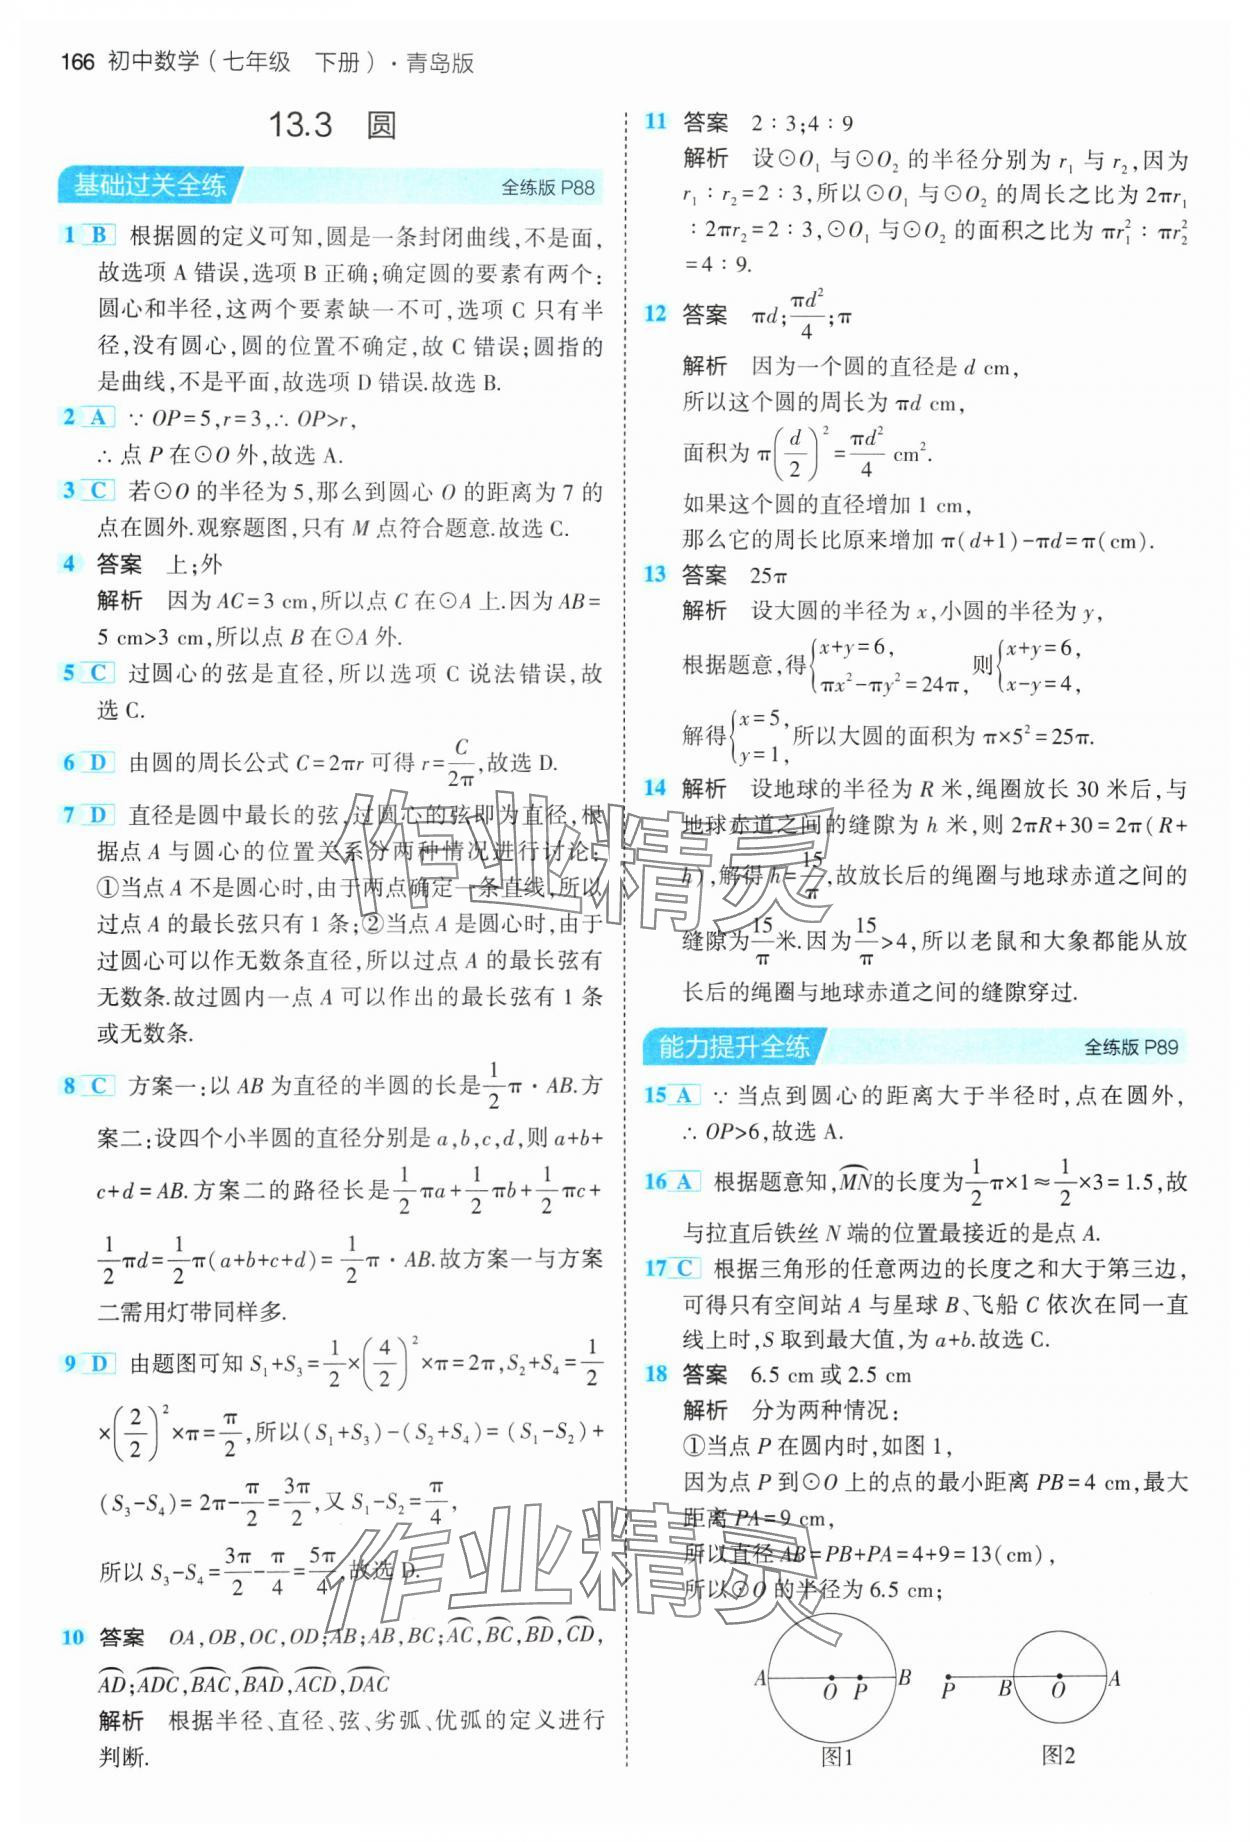 166 初中数学(七年级 下册)·青岛版
13.3 圆
基础过关全练 全练版 P88
1 B 根据圆的定义可知,圆是一条封闭曲线,不是面,
故选项 A 错误,选项 B 正确;确定圆的要素有两个:
圆心和半径,这两个要素缺一不可,选项 C 只有半
径,没有圆心,圆的位置不确定,故 C 错误;圆指的
是曲线,不是平面,故选项 D 错误.故选 B.
2 A ∵ OP=5,r=3,∴ OP>r,
∴ 点 P 在⊙O 外,故选 A.
3 C 若⊙O 的半径为 5,那么到圆心 O 的距离为 7 的
点在圆外.观察题图,只有 M 点符合题意.故选 C.
4 答案 上;外
解析 因为 AC=3 cm,所以点 C 在⊙A 上.因为 AB=
5 cm>3 cm,所以点 B 在⊙A 外.
5 C 过圆心的弦是直径,所以选项 C 说法错误,故
选 C.
6 D 由圆的周长公式 C=2πr 可得 r=C/2π,故选 D.
7 D 直径是圆中最长的弦,过圆心的弦即为直径,根
据点 A 与圆心的位置关系分两种情况进行讨论:
①当点 A 不是圆心时,由于两点确定一条直线,所以
过点 A 的最长弦只有 1 条;②当点 A 是圆心时,由于
过圆心可以作无数条直径,所以过点 A 的最长弦有
无数条.故过圆内一点 A 可以作出的最长弦有 1 条
或无数条.
8 C 方案一:以 AB 为直径的半圆的长是1/2π·AB.方
案二:设四个小半圆的直径分别是 a,b,c,d,则 a+b+
c+d=AB.方案二的路径长是1/2πa+1/2πb+1/2πc+
1/2πd=1/2π(a+b+c+d)=1/2π·AB.故方案一与方案
二需用灯带同样多.
9 D 由题图可知 S₁+S₃=1/2×(4/2)²×π=2π,S₂+S₄=1/2
×(2/2)²×π=π/2,所以(S₁+S₃)-(S₂+S₄)=(S₁-S₂)+
(S₃-S₄)=2π-π/2=3π/2,又 S₁-S₂=π/4,
所以 S₃-S₄=3π/2-π/4=5π/4,故选 D.
10 答案 OA,OB,OC,OD;AB;AB,BC;A͡C,B͡C,B͡D,C͡D,
A͡D;A͡DC,B͡AC,B͡AD,A͡CD,D͡AC
解析 根据半径、直径、弦、劣弧、优弧的定义进行
判断.
11 答案 2∶3;4∶9
解析 设⊙O₁ 与⊙O₂ 的半径分别为 r₁ 与 r₂,因为
r₁∶r₂=2∶3,所以⊙O₁ 与⊙O₂ 的周长之比为 2πr₁
∶2πr₂=2∶3,⊙O₁ 与⊙O₂ 的面积之比为 πr₁²∶πr₂²
=4∶9.
12 答案 πd;πd²/4;π
解析 因为一个圆的直径是 d cm,
所以这个圆的周长为 πd cm,
面积为 π(d/2)²=πd²/4 cm².
如果这个圆的直径增加 1 cm,
那么它的周长比原来增加 π(d+1)-πd=π(cm).
13 答案 25π
解析 设大圆的半径为 x,小圆的半径为 y,
根据题意,得{x+y=6, πx²-πy²=24π, 则{x+y=6, x-y=4,
解得{x=5, y=1, 所以大圆的面积为 π×5²=25π.
14 解析 设地球的半径为 R 米,绳圈放长 30 米后,与
地球赤道之间的缝隙为 h 米,则 2πR+30=2π(R+
h),解得 h=15/π,故放长后的绳圈与地球赤道之间的
缝隙为15/π米.因为15/π>4,所以老鼠和大象都能从放
长后的绳圈与地球赤道之间的缝隙穿过.
能力提升全练 全练版 P89
15 A ∵ 当点到圆心的距离大于半径时,点在圆外,
∴ OP>6,故选 A.
16 A 根据题意知,M͡N的长度为1/2π×1≈1/2×3=1.5,故
与拉直后铁丝 N 端的位置最接近的是点 A.
17 C 根据三角形的任意两边的长度之和大于第三边,
可得只有空间站 A 与星球 B、飞船 C 依次在同一直
线上时,S 取到最大值,为 a+b.故选 C.
18 答案 6.5 cm 或 2.5 cm
解析 分为两种情况:
①当点 P 在圆内时,如图 1,
因为点 P 到⊙O 上的点的最小距离 PB=4 cm,最大
距离 PA=9 cm,
所以直径 AB=PB+PA=4+9=13(cm),
所以⊙O 的半径为 6.5 cm;
A O P B P B O A
图1 图2
作业精灵
作业精灵